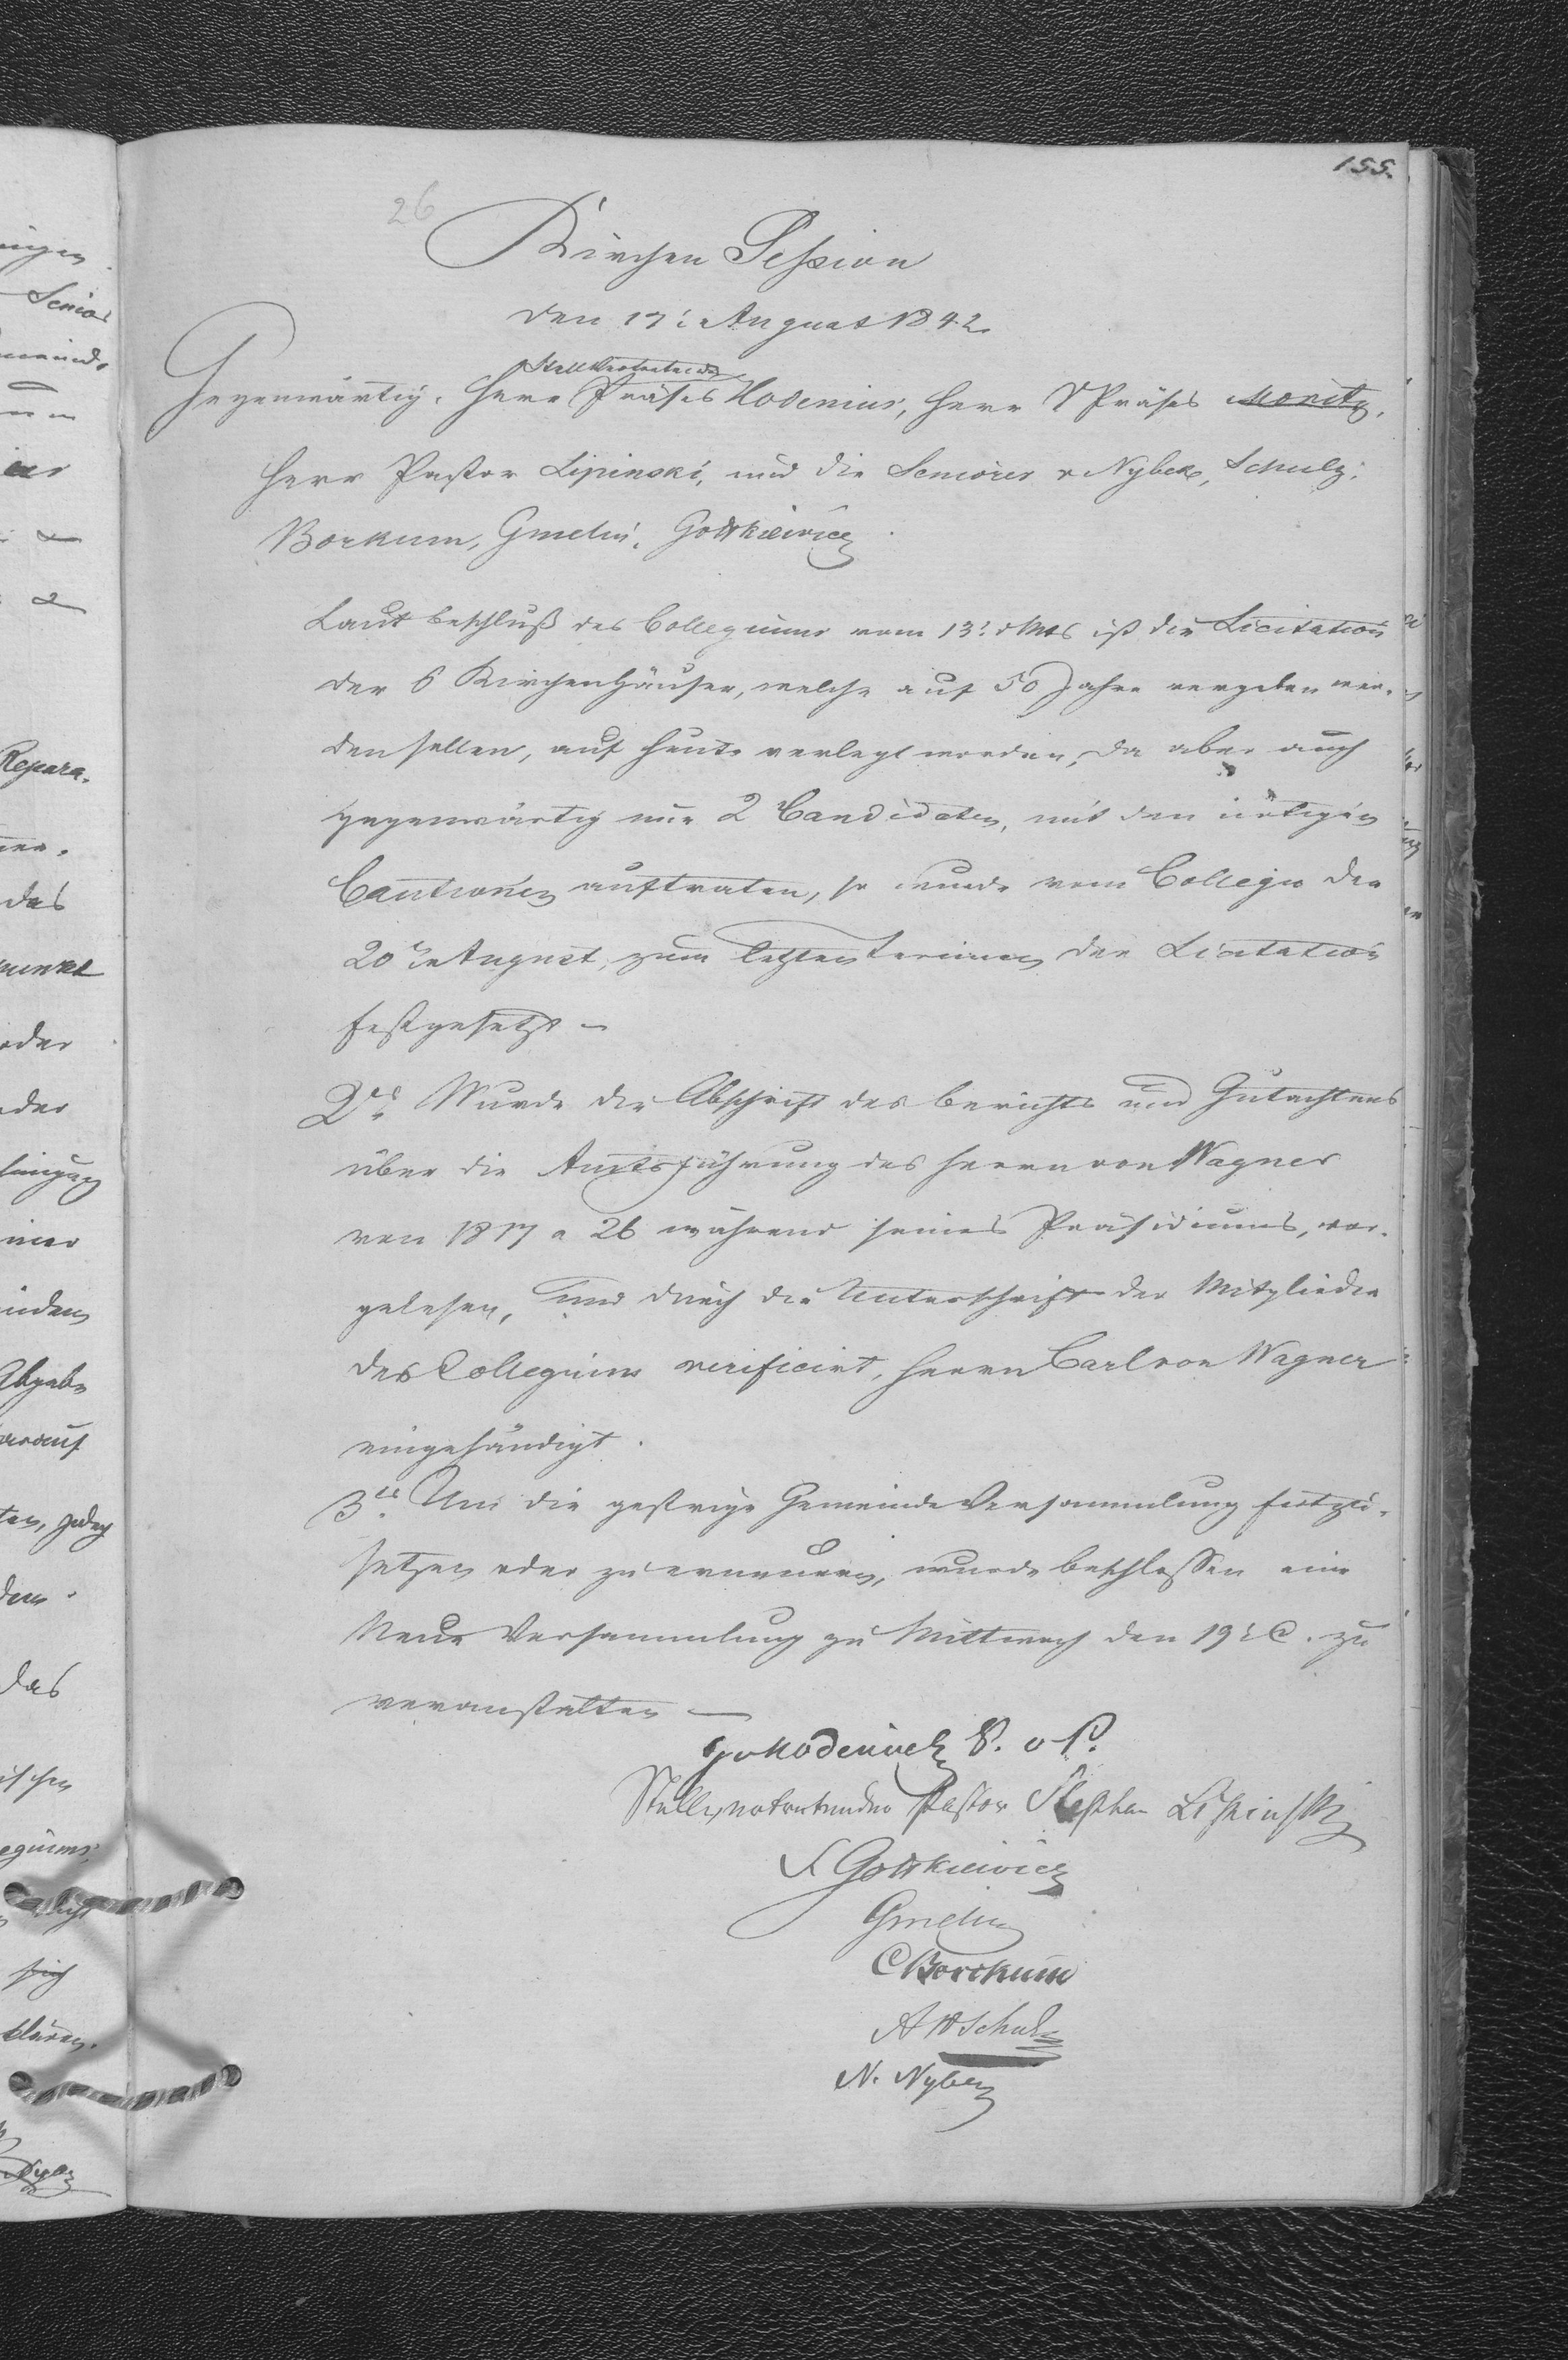 155.
26
Kirchen Session
den 17: August 1842
Stellvertretender
Gegenwärtig. Herr Präses Hodenius, Herr VPräses Moritz,
Herr Pastor Lipinski, und die Seniores v Nybek, Schulz,
Borkum, Gmelin, Gottkiewicz
Laut Beschluß des Collegiums vom 13: d Mts ist die Licitation
der 6 Kirchenhäuser, welche auf 50 Jahre vergeben wer-
den sollen, auf heute verlegt worden, da aber auch
gegenwärtig nur 2 Candidaten, mit den nötigen
Cautionen auftraten, so wurde vom Collegio der
20 August, zum letzten Termin der Licitation
festgesetzt –
2. Wurde die Abschrift des Berichts und Gutachtens
über die Amtsführung des Herrn von Wagner
von 1817 a 26 während seines Präsidiums, vor-
gelesen, und durch die Unterschrift der Mitglieder
des Collegiums verificirt, Herrn Carl von Wagner
eingehändigt.
3. Um die gestrige Gemeinde Versammlung fortzu-
setzen oder zu erneuern, wurde beschlossen eine
Neue Versammlung zu Mittwoch den 19 C. zu
veranstalten —
V. P.
Stellvertretender Pastor Stephan Lipinski
Gottkiewicz
Gmelin
C Borckum
A Schulz
N. Nybek
Senior
Repara-
das
oder
oder
Abgabe
darauf
das